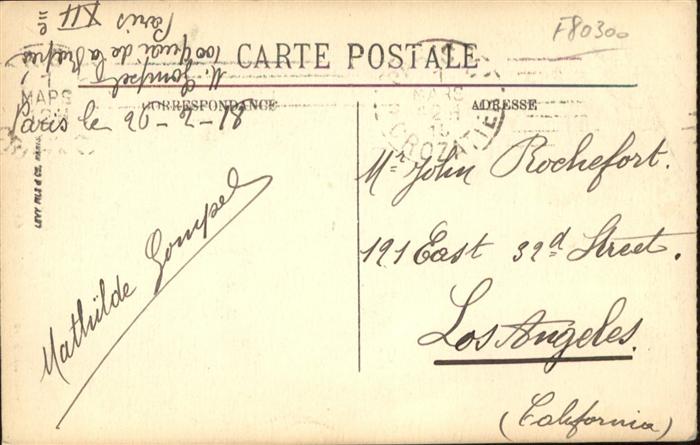 CARTE POSTALE
CORRESPONDANCE
ADRESSE
F80300
M. Gompel
100 Quai de la
Paris XII
Paris le 26-2-18
Mathilde Gompel
Mr John Rochefort.
191 East 32d Street.
Los Angeles.
(California)
MARS
MARS
CROZATIER
LEVY FILS & Cie, PARIS